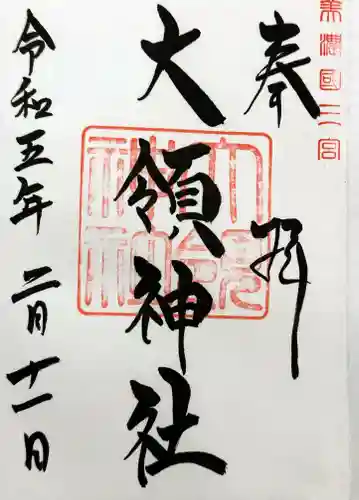 美濃國二宮
奉拝
大領神社
大領神社
令和五年 二月十一日